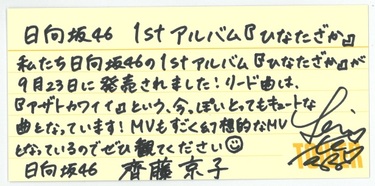 日向坂46 1stアルバム『ひなたざか』
私たち日向坂46の1stアルバム『ひなたざか』が
9月23日に発売されました!リード曲は、
『アザトカワイイ』という、今、ぽいとってもキュートな
曲となっています!MVもすごく幻想的なMV
となっているのでぜひ観てください
日向坂46 齊藤京子
TOWER